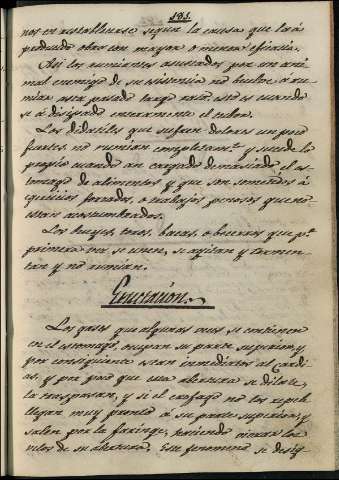 181.
nos en restablecerse segun la causa que la á
producido obra con mayor o menor eficacia.
Asi los rumiantes asustados por un ani
mal enemigo de su existencia no buelve á ru-
miar sino pasado largo rato, esto es cuando
se á disipado enteramente el temor.
Los didatiles que sufren dolores un poco
fuertes no rumian completam.te y sucede lo
propio cuando an cargado demasiado el es-
tomago de alimentos y que son sometidos á
egercicios forzados, o trabajos penosos que no
estan acostumbrados.
Los bueyes, toros, bacas, o becerros que p.r
primera vez se uncen, se agitan y tormen-
tan y no rumian.
Eructacion.
Los gases que algunas veces se contienen
en el estomago, ocupan su parte superior, y
por consiguiente estan inmediatos al Cardi-
as, y por poco que esta abertura se dilate,
la traspasan, y si el exofago no los repe-
llegan muy pronto á su parte superior, y
salen por la faringe, haciendo vibrar los
velos de su abertura. Este fenomeno se desig-